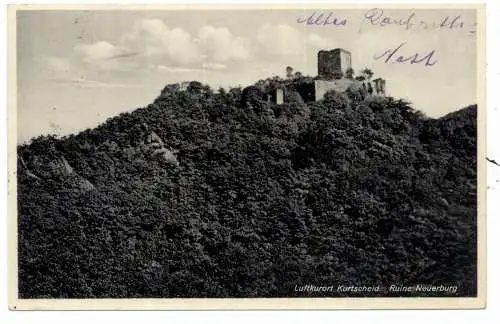 Altes Raubritter-
Nest.
Luftkurort Kurtscheid. Ruine Neuerburg